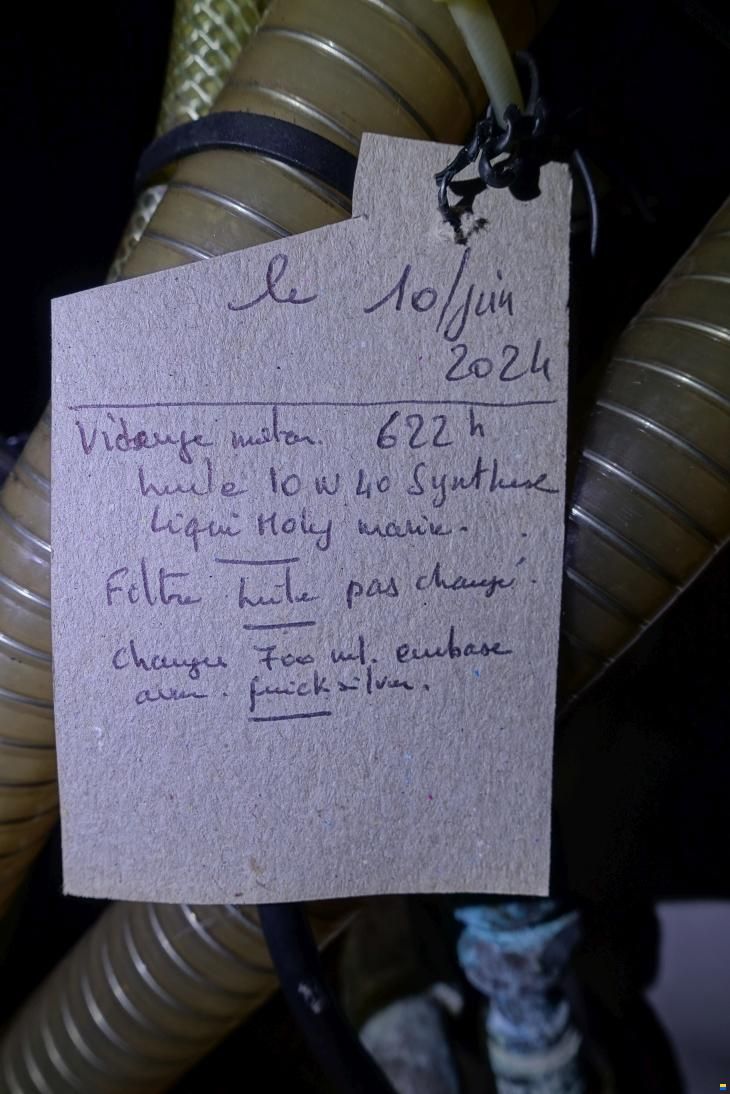 le 10/juin
2024
Vidange moteur. 622 h
huile 10 W 40 Synthese
Liqui Moly marine.
Filtre huile pas changé.
changer 700 ml. embase
avec. quicksilver.